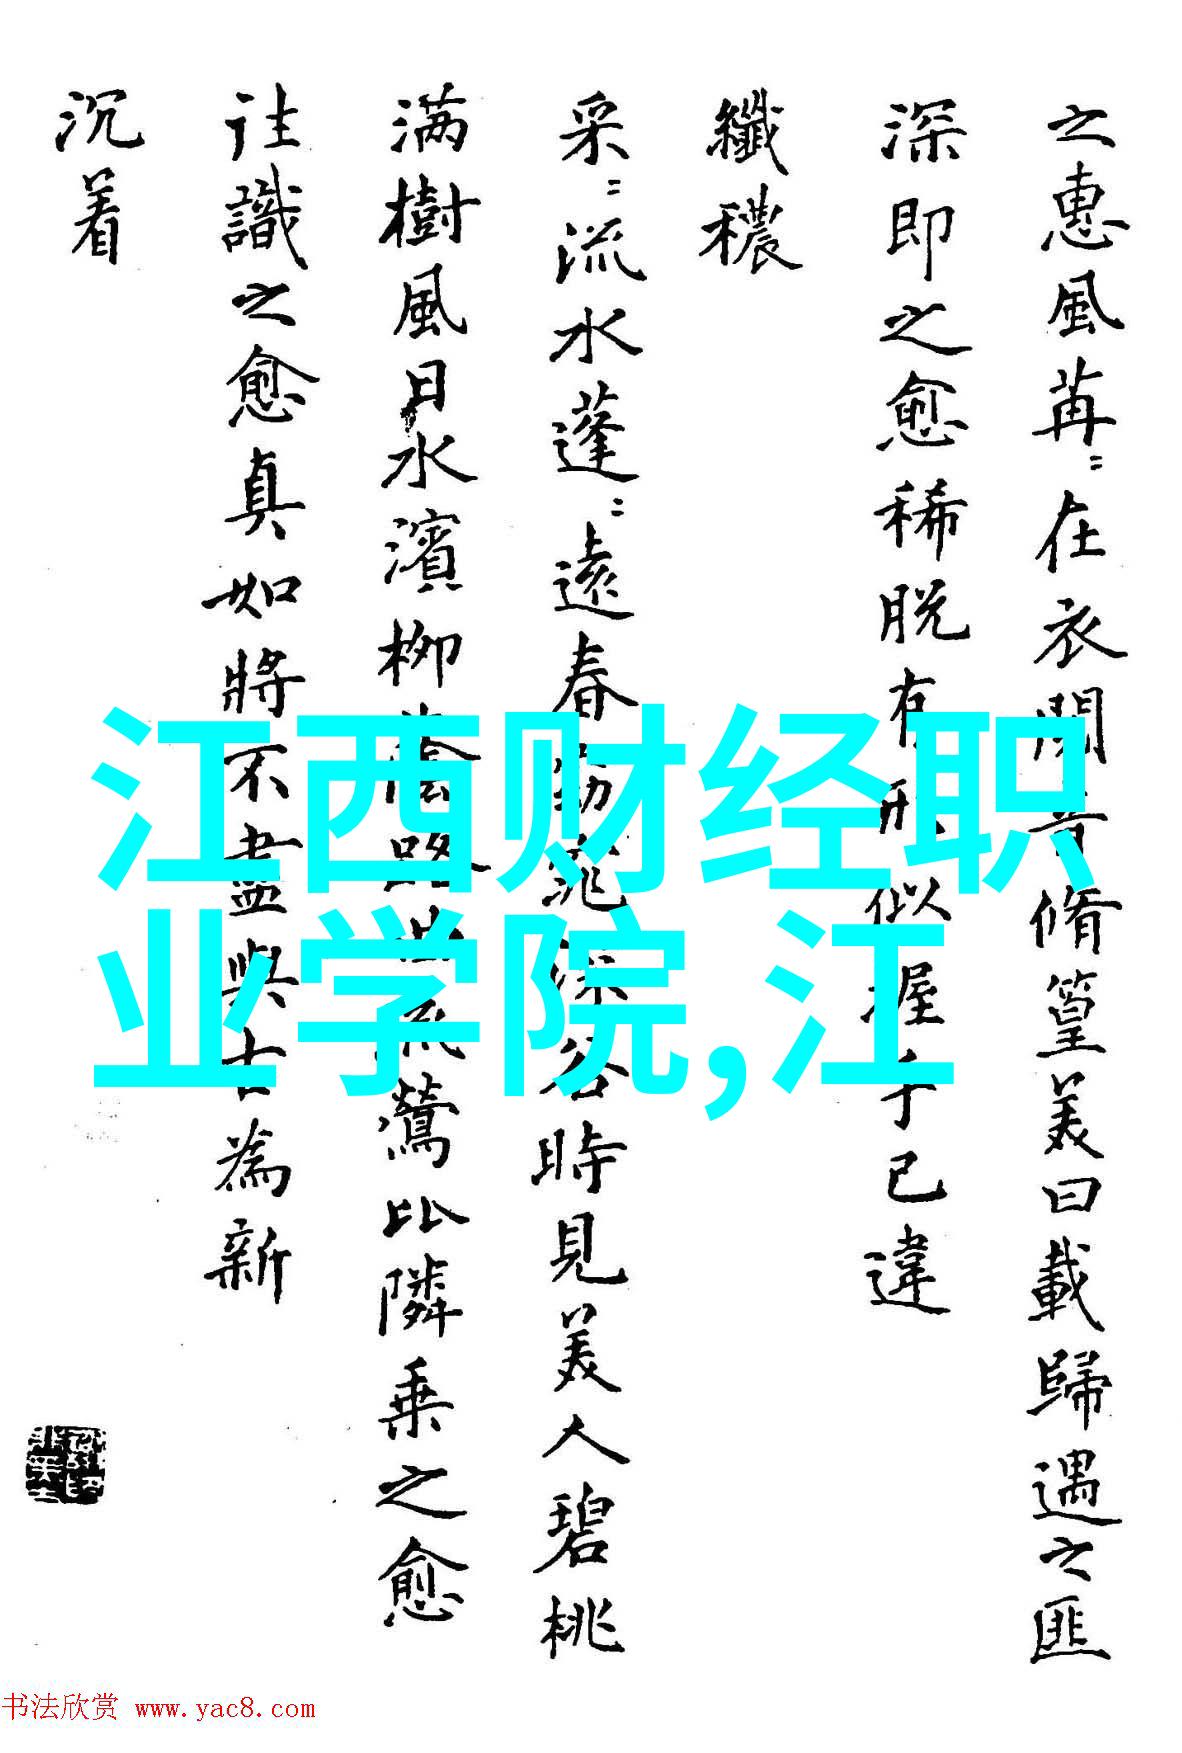 之惠風苒〻在衣閱音脩篁美曰載歸遇之匪
深即之愈稀脫有形似握手已違
纖穠
采〻流水蓬〻遠春窈窕深谷時見美人碧桃
满樹風日水濱柳陰路曲流鶯比隣乗之愈
往識之愈真如將不盡與古為新
沉着
江西财经职
业学院,江
书法欣赏 www.yac8.com